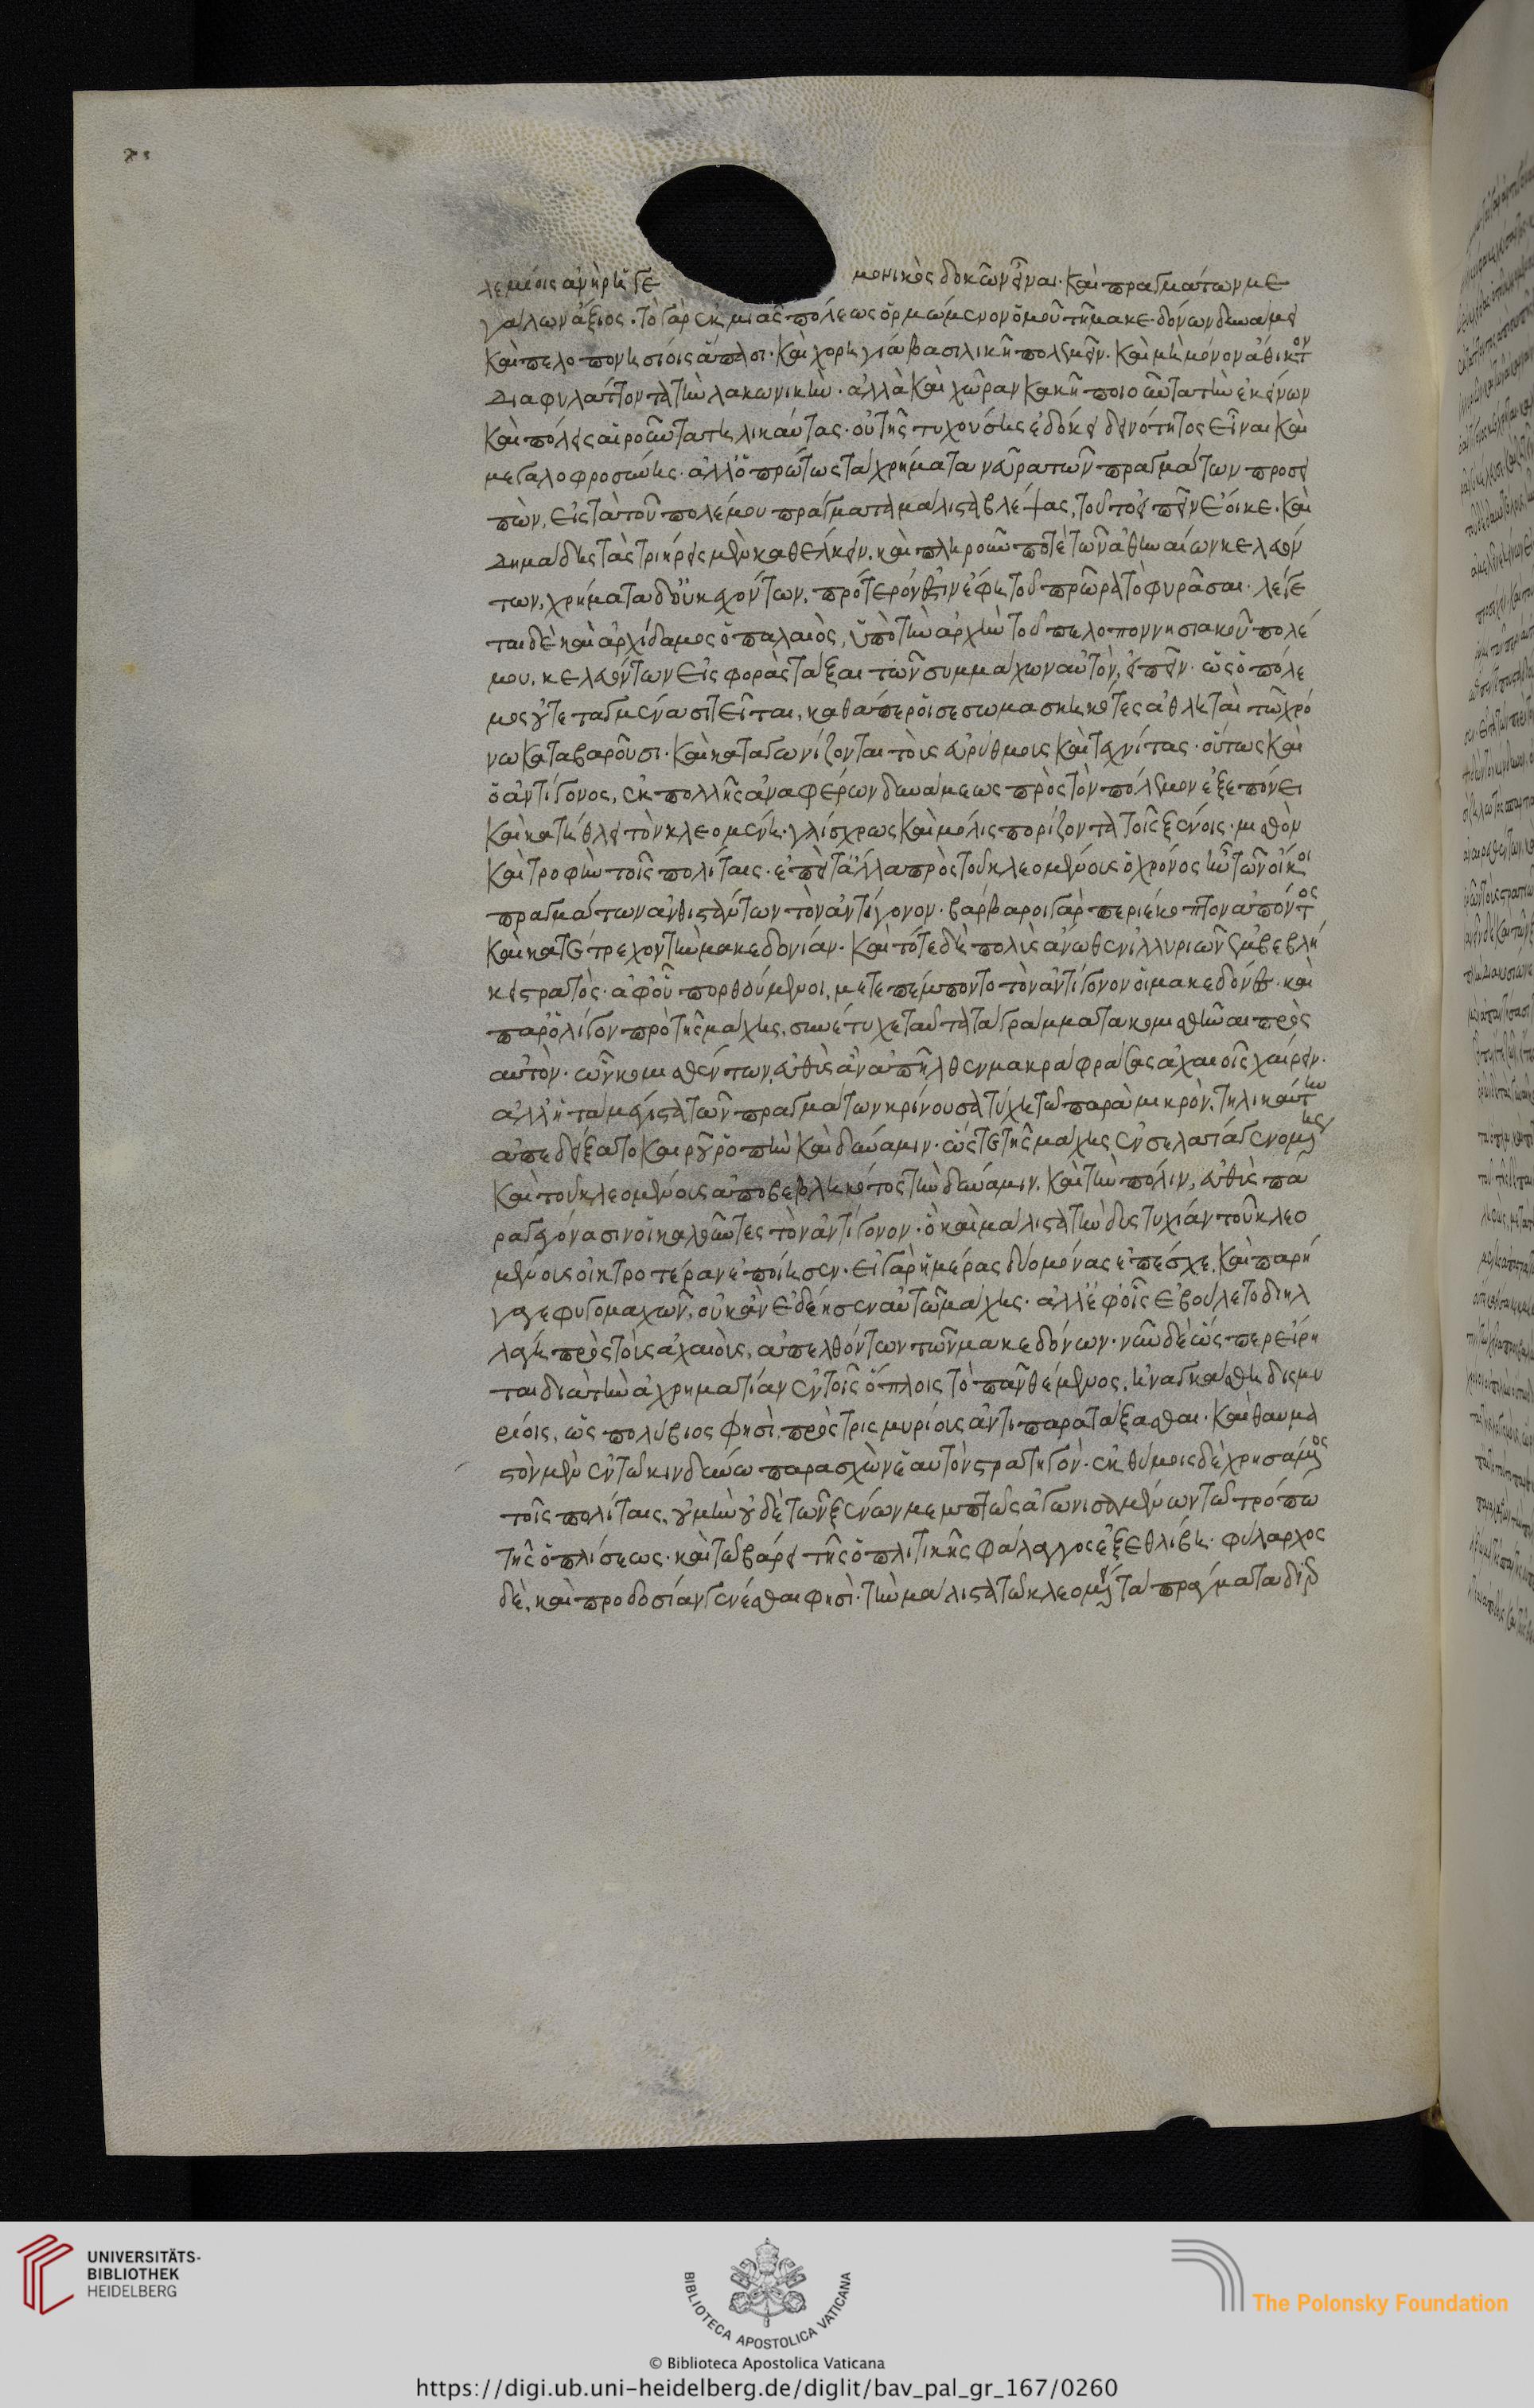 λεμίοις ἀνὴρ ἡγε μονικὸς δοκῶν εἶναι· καὶ πραγμάτων με
γάλων ἄξιος· τὸ γὰρ ἐκ μιᾶς πόλεως ὁρμώμενον ὁμοῦ τῆ μακεδόνων δυνάμει
καὶ πελοποννησίοις ἅπασι· καὶ χορηγία βασιλικῆ πολεμεῖν· καὶ μὴ μόνον ἄθικτον
διαφυλάττοντα τὴν λακωνικὴν· ἀλλὰ καὶ χώραν κακῆ ποιοῦντα τὴν ἐκείνων
καὶ πόλεις αἱροῦντα τηλικαύτας· οὐ τῆς τυχούσης ἐδόκει δεινότητος εἶναι καὶ
μεγαλοφροσύνης· ἀλλ' ὁ πρῶτος τὰ χρήματα νεῦρα τῶν πραγμάτων προσει
πὼν, εἰς τὰ τοῦ πολέμου πράγματα μάλιστα βλέψας, τοῦτο εἰπεῖν ἔοικε· καὶ
δημάδης τὰς τριήρεις μὲν καθέλκειν· καὶ πληροῦν ποτὲ τῶν ἀθηναίων κελευόν
των, χρήματα δ' οὐκ ἐχόντων, πρότερόν ἐστιν ἔφη τοῦ πρωρατο φυρᾶσαι· λέγε
ται δὲ καὶ ἀρχίδαμος ὁ παλαιὸς, ὑπὸ τὴν ἀρχὴν τοῦ πελοποννησιακοῦ πολέ
μου, κελευόντων εἰσφορὰς τάξαι τῶν συμμάχων αὐτὸν, εἰπεῖν· ὡς ὁ πόλε
μος οὐ τεταγμένα σιτεῖται, καθάπερ οἱ σεσωμασκηκότες ἀθληταὶ τῶ χρό
νω καταβαροῦσι· καὶ καταγωνίζονται τοὺς εὐρύθμους καὶ τεχνίτας· οὕτως καὶ
ὁ ἀντίγονος, ἐκ πολλῆς ἀναφέρων δυνάμεως πρὸς τὸν πόλεμον ἐξεπόνει
καὶ κατήθλει τὸν κλεομένη· γλίσχρως καὶ μόλις πορίζοντα τοῖς ξένοις· μισθὸν
καὶ τροφὴν τοῖς πολίταις· ἐπεὶ τἄλλα πρὸς τοῦ κλεομένους ὁ χρόνος ἦν τῶν οἴκοι
πραγμάτων ἀνθιστάντων τὸν ἀντίγονον· βάρβαροι γὰρ περιέκοπτον ἀπόντος
καὶ κατέτρεχον τὴν μακεδονίαν· καὶ τότε δὴ πολὺς ἄνωθεν ἰλλυριῶν ἐμβεβλή
κει στρατὸς· ἀφ' οὗ πορθούμενοι, μετεπέμποντο τὸν ἀντίγονον οἱ μακεδόνες· καὶ
παρ' ὀλίγον πρὸ τῆς μάχης, συνέτυχε ταῦτα τὰ γράμματα κομισθῆναι πρὸς
αὐτὸν· ὧν κομισθέντων, εὐθὺς ἂν ἀπῆλθεν μακρὰ φράσας ἀχαιοῖς χαίρειν·
ἀλλ' ἡ τὰ μέγιστα τῶν πραγμάτων κρίνουσα τύχη τῶ παρὰ μικρὸν, τηλικαύτην
ἀπεδείξατο καιροῦ ῥοπὴν καὶ δύναμιν· ὥστε τῆς μάχης ἐν σελασία γενομένης
καὶ τοῦ κλεομένους ἀποβεβληκότος τὴν δύναμιν, καὶ τὴν πόλιν, εὐθὺς πα
ραγεγόνασιν οἱ καλοῦντες τὸν ἀντίγονον· ὃ καὶ μάλιστα τὴν δυστυχίαν τοῦ κλεο
μένους οἰκτροτέραν ἐποίησεν· εἰ γὰρ ἡμέρας δύο μόνας ἐπέσχε, καὶ παρή
γαγε φυγομαχῶν, οὐκ ἂν ἐδέησεν αὐτῶ μάχης· ἀλλ' ἐφ' οἷς ἐβούλετο διηλ
λάγη πρὸς τοὺς ἀχαιοὺς, ἀπελθόντων τῶν μακεδόνων· νῦν δὲ ὥσπερ εἴρη
ται διὰ τὴν ἀχρηματίαν ἐν τοῖς ὅπλοις τὸ πᾶν θέμενος, ἠναγκάσθη δισμυ
ρίοις, ὡς πολύβιος φησὶ, πρὸς τρισμυρίους ἀντιπαρατάξασθαι· καὶ θαυμα
στὸν μὲν ἐν τῶ κινδύνω παρασχὼν ἑαυτὸν στρατηγόν· ἐκθύμοις δὲ χρησάμενος
τοῖς πολίταις, οὐ μὴν οὐδὲ τῶν ξένων μεμπτῶς ἀγωνισαμένων τῶ τρόπω
τῆς ὁπλίσεως· καὶ τῶ βάρει τῆς ὁπλιτικῆς φάλαγγος ἐξεθλίβη· φύλαρχος
δὲ, καὶ προδοσίαν γενέσθαι φησὶ· τὴν μάλιστα τῶ κλεομένει τὰ πράγματα διερ
UNIVERSITÄTS-
BIBLIOTHEK
HEIDELBERG
BIBLIOTECA APOSTOLICA VATICANA
The Polonsky Foundation
© Biblioteca Apostolica Vaticana
https://digi.ub.uni-heidelberg.de/diglit/bav_pal_gr_167/0260